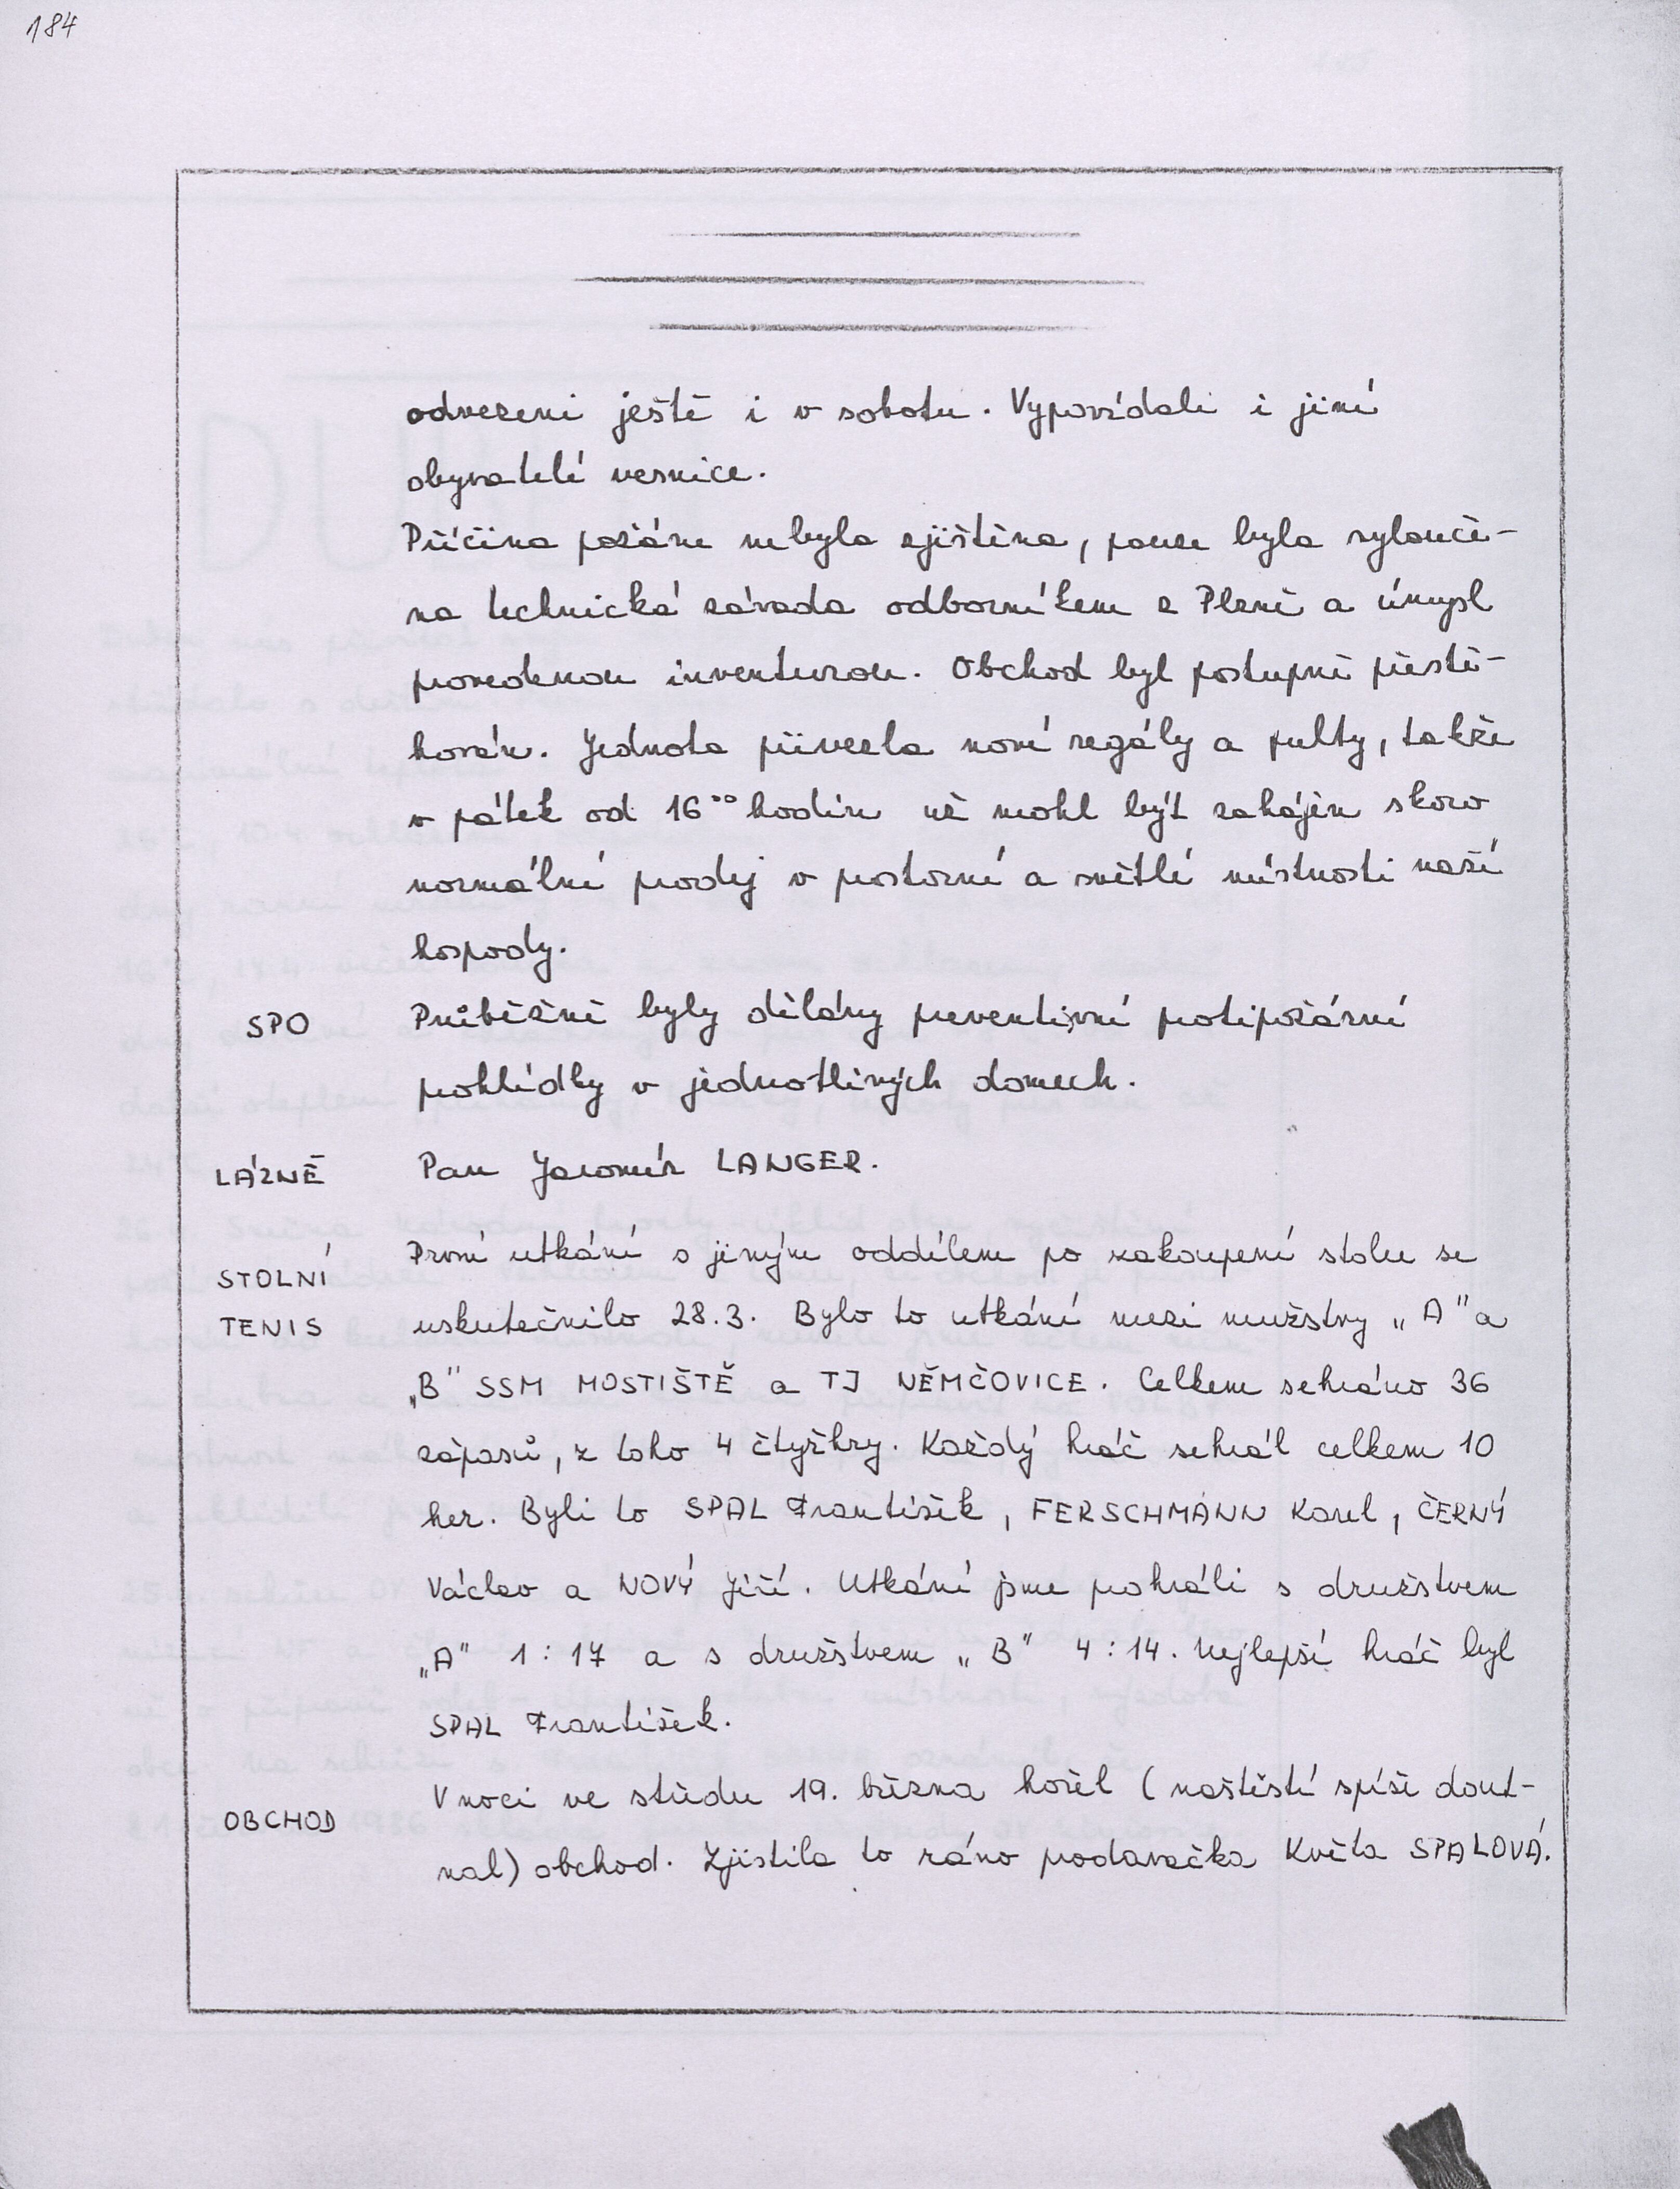 184
odvezeni ještě i v sobotu. Vypovídali i jiní
obyvatelé vesnice.
Příčina požáru nebyla zjištěna, pouze byla vylouče-
na technická závada odborníkem z Plzně a úmysl
provedenou inventurou. Obchod byl postupně přestě-
hován. Jednota přivezla nové regály a pulty, takže
v pátek od 16⁰⁰ hodin už mohl být zahájen skoro
normální prodej v prostorné a světlé místnosti naší
hospody.
SPO Průběžně byly dělány preventivní protipožární
prohlídky v jednotlivých domech.
LÁZNĚ Pan Jaromír LANGER.
STOLNÍ První utkání s jiným oddílem po zakoupení stolu se
TENIS uskutečnilo 28.3. Bylo to utkání mezi mužstvy „A" a
„B" SSM MOSTIŠTĚ a TJ NĚMČOVICE. Celkem sehráno 36
zápasů, z toho 4 čtyřhry. Každý hráč sehrál celkem 10
her. Byli to SPAL František, FERSCHMANN Karel, ČERNÝ
Václav a NOVÝ Jiří. Utkání jsme prohráli s družstvem
„A" 1:17 a s družstvem „B" 4:14. Nejlepší hráč byl
SPAL František.
OBCHOD V noci ve středu 19. března hořel (naštěstí spíše dout-
nal) obchod. Zjistila to ráno prodavačka Květa SPALOVÁ.